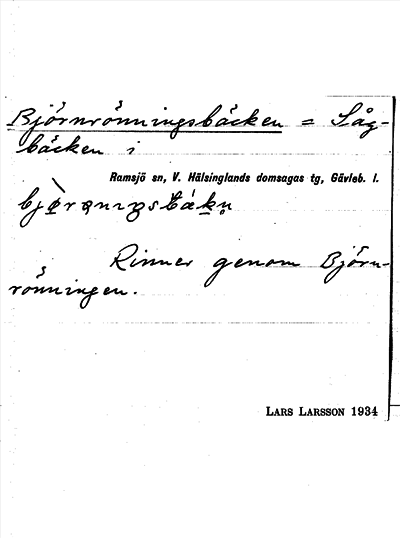 Björnrönningsbäcken = Såg-
bäcken i
Ramsjö sn, V. Hälsinglands domsagas tg, Gävleb. l.
Rinner genom Björn-
rönningen.
LARS LARSSON 1934